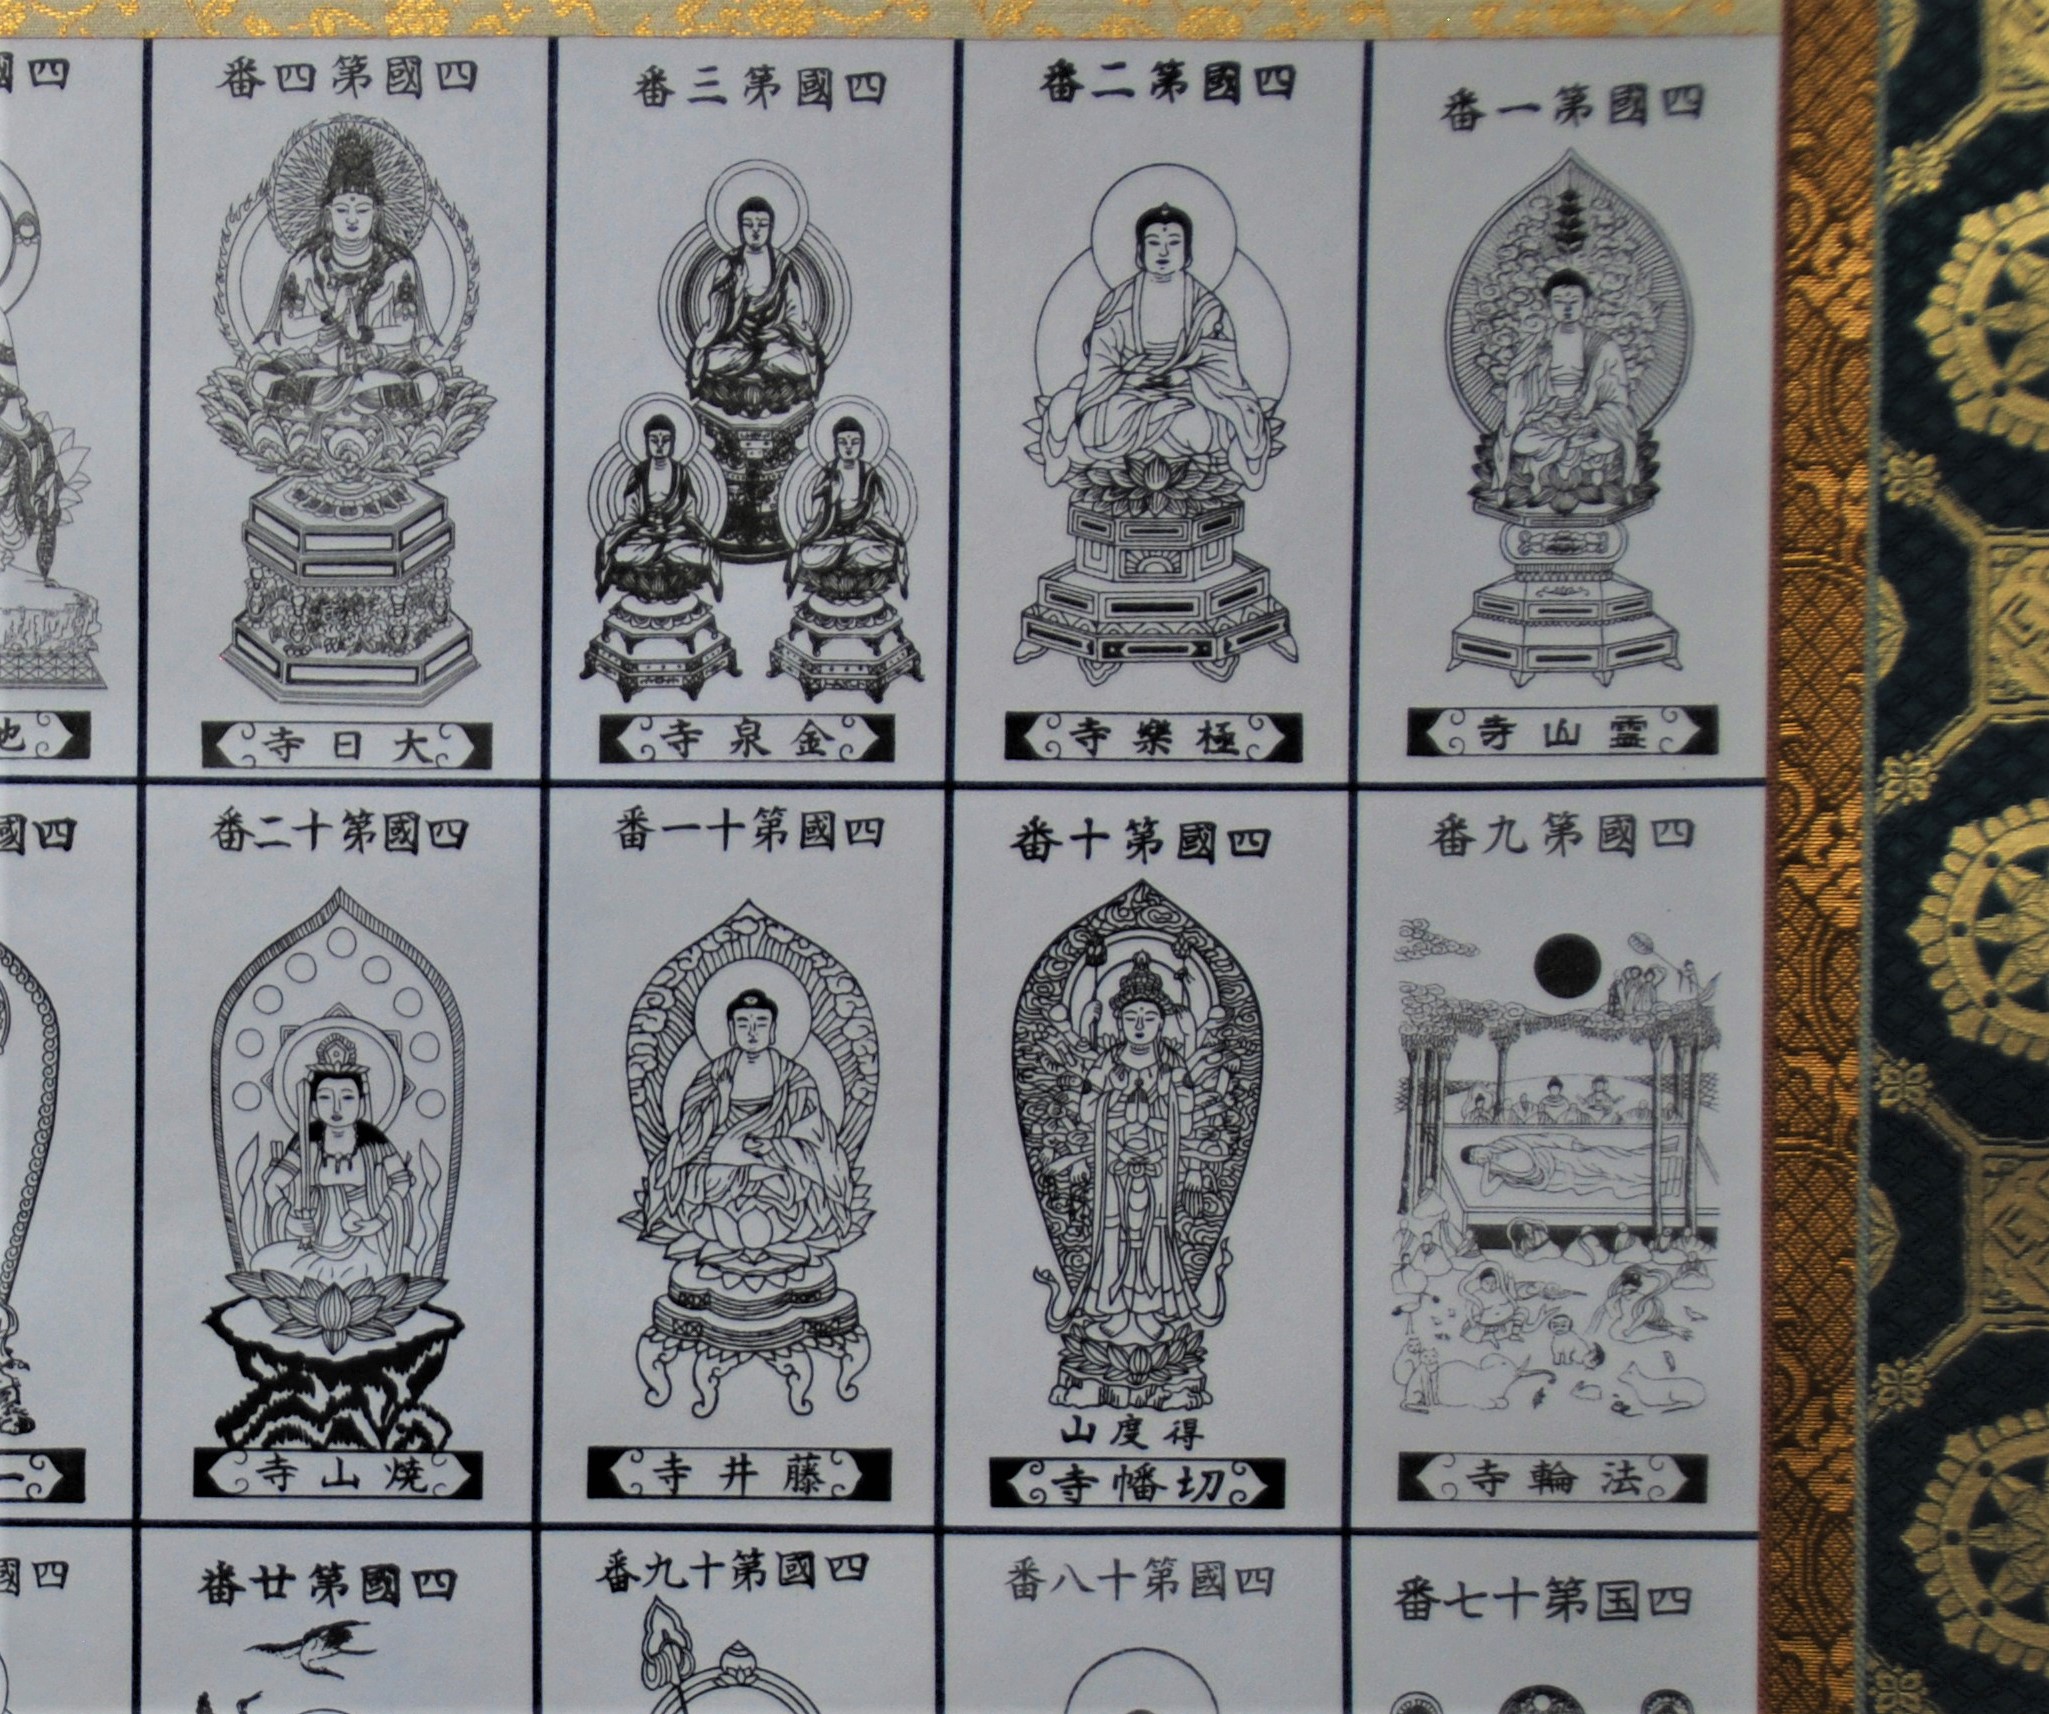 四國第一番
霊山寺
四國第二番
極樂寺
四國第三番
金泉寺
四國第四番
大日寺
四國
四國第九番
法輪寺
四國第十番
得度山
切幡寺
四國第十一番
藤井寺
四國第十二番
焼山寺
四國
四国第十七番
四國第十八番
四國第十九番
四國第廿番
四國